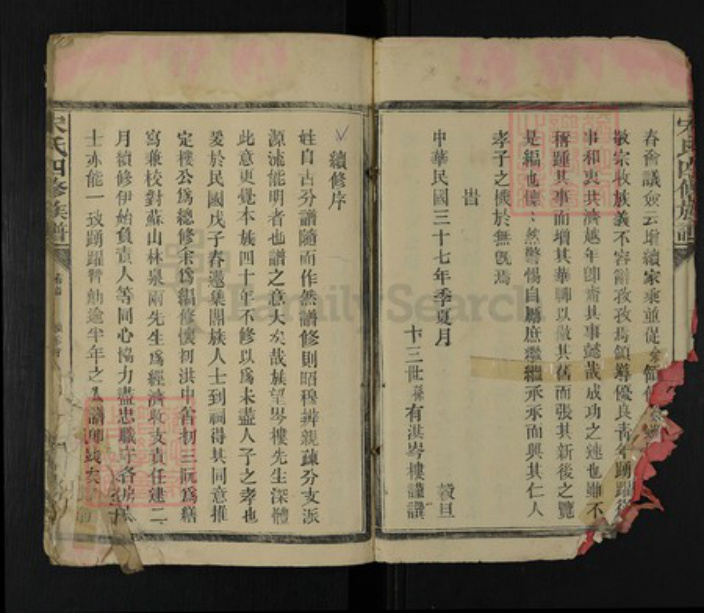 春會議僉云增續家乘並從
敬宗收族義不容辭孜孜焉領導優良青年踴躍從
事和衷共濟越年卽齊其事懿哉成功之速也雖不
稱踵其事而增其華聊以倣其舊而張其新後之覽
是編也懍懍然警惕自勵庶繼繼承承而興其仁人
孝子之懷於無旣焉
旹
中華民國三十七年季夏月 穀旦
卞三世孫有淇岑樓謹譔
宋氏四修族譜
續修序
姓自古分譜隨而作然譜修則昭穆辨親疎分支派
源流能明者也譜之意大矣哉族望岑樓先生深體
此意更覺本族四十年不修以爲未盡人子之孝也
爰於民國戊子春邀集闔族人士到祠得其同意推
定樓公爲總修余爲編修懷初洪中哲初三阮爲繕
寫兼校對蘇山林泉兩先生爲經濟收支責任建二
月續修伊始負責人等同心協力盡忠職守各房
士亦能一致踴躍暫勉逾半年之久譜
宋氏四修族譜
FamilySearch